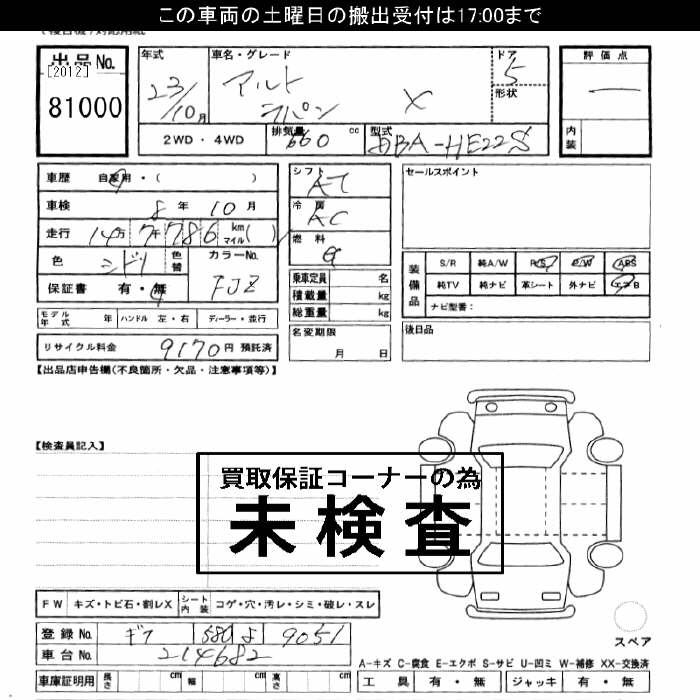 この車両の土曜日の搬出受付は17:00まで
出品No.
[2012]
81000
年式
23/10月
車名・グレード
アルト
ラパン X
ドア
5
形状
評価点
内装
2WD・4WD
排気量 660 cc
型式 DBA-HE22S
車歴 自家用・( )
シフト AT
セールスポイント
車検 8年10月
冷房 AC
走行 14万7千786 km マイル( )
燃料 G
色 ミドリ 色替
カラーNo. FJZ
保証書 有・無
乗車定員 名
積載量 kg
総重量 kg
装備品
S/R 純A/W P/S P/W ABS
純TV 純ナビ 革シート 外ナビ エアB
ナビ型番:
モデル年式 年 ハンドル 左・右 ディーラー・並行
名変期限
月 日
後日品
リサイクル料金 9170円 預託済
【出品店申告欄(不良箇所・欠品・注意事項等)】
【検査員記入】
買取保証コーナーの為
未検査
FW キズ・トビ石・割レX シート内装 コゲ・穴・汚レ・シミ・破レ・スレ
登録No. ギフ 580 よ 9051
車台No. 214682
車庫証明用 長さ cm 幅 cm 高さ cm
スペア
A-キズ C-腐食 E-エクボ S-サビ U-凹ミ W-補修 XX-交換済
工具 有・無 ジャッキ 有・無